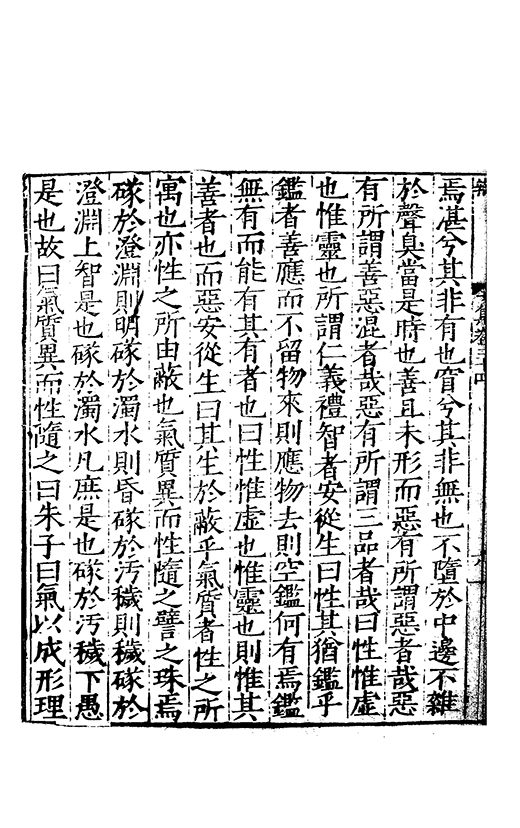 焉湛兮其非有也窅兮其非無也不墮於中邊不雜
於聲臭當是時也善且未形而惡有所謂惡者哉惡
有所謂善惡混者哉惡有所謂三品者哉曰性惟虛
也惟靈也所謂仁義禮智者安從生曰性其猶鑑乎
鑑者善應而不留物來則應物去則空鑑何有焉鑑
無有而能有其有者也曰性惟虛也惟靈也則惟其
善者也而惡安從生曰其生於蔽乎氣質者性之所
寓也亦性之所由蔽也氣質異而性隨之譬之珠焉
磜於澄淵則明磜於濁水則昏磜於汚穢則穢磜於
澄淵上智是也磜於濁水凡庶是也磜於汚穢下愚
是也故曰氣質異而性隨之曰朱子曰氣以成形理